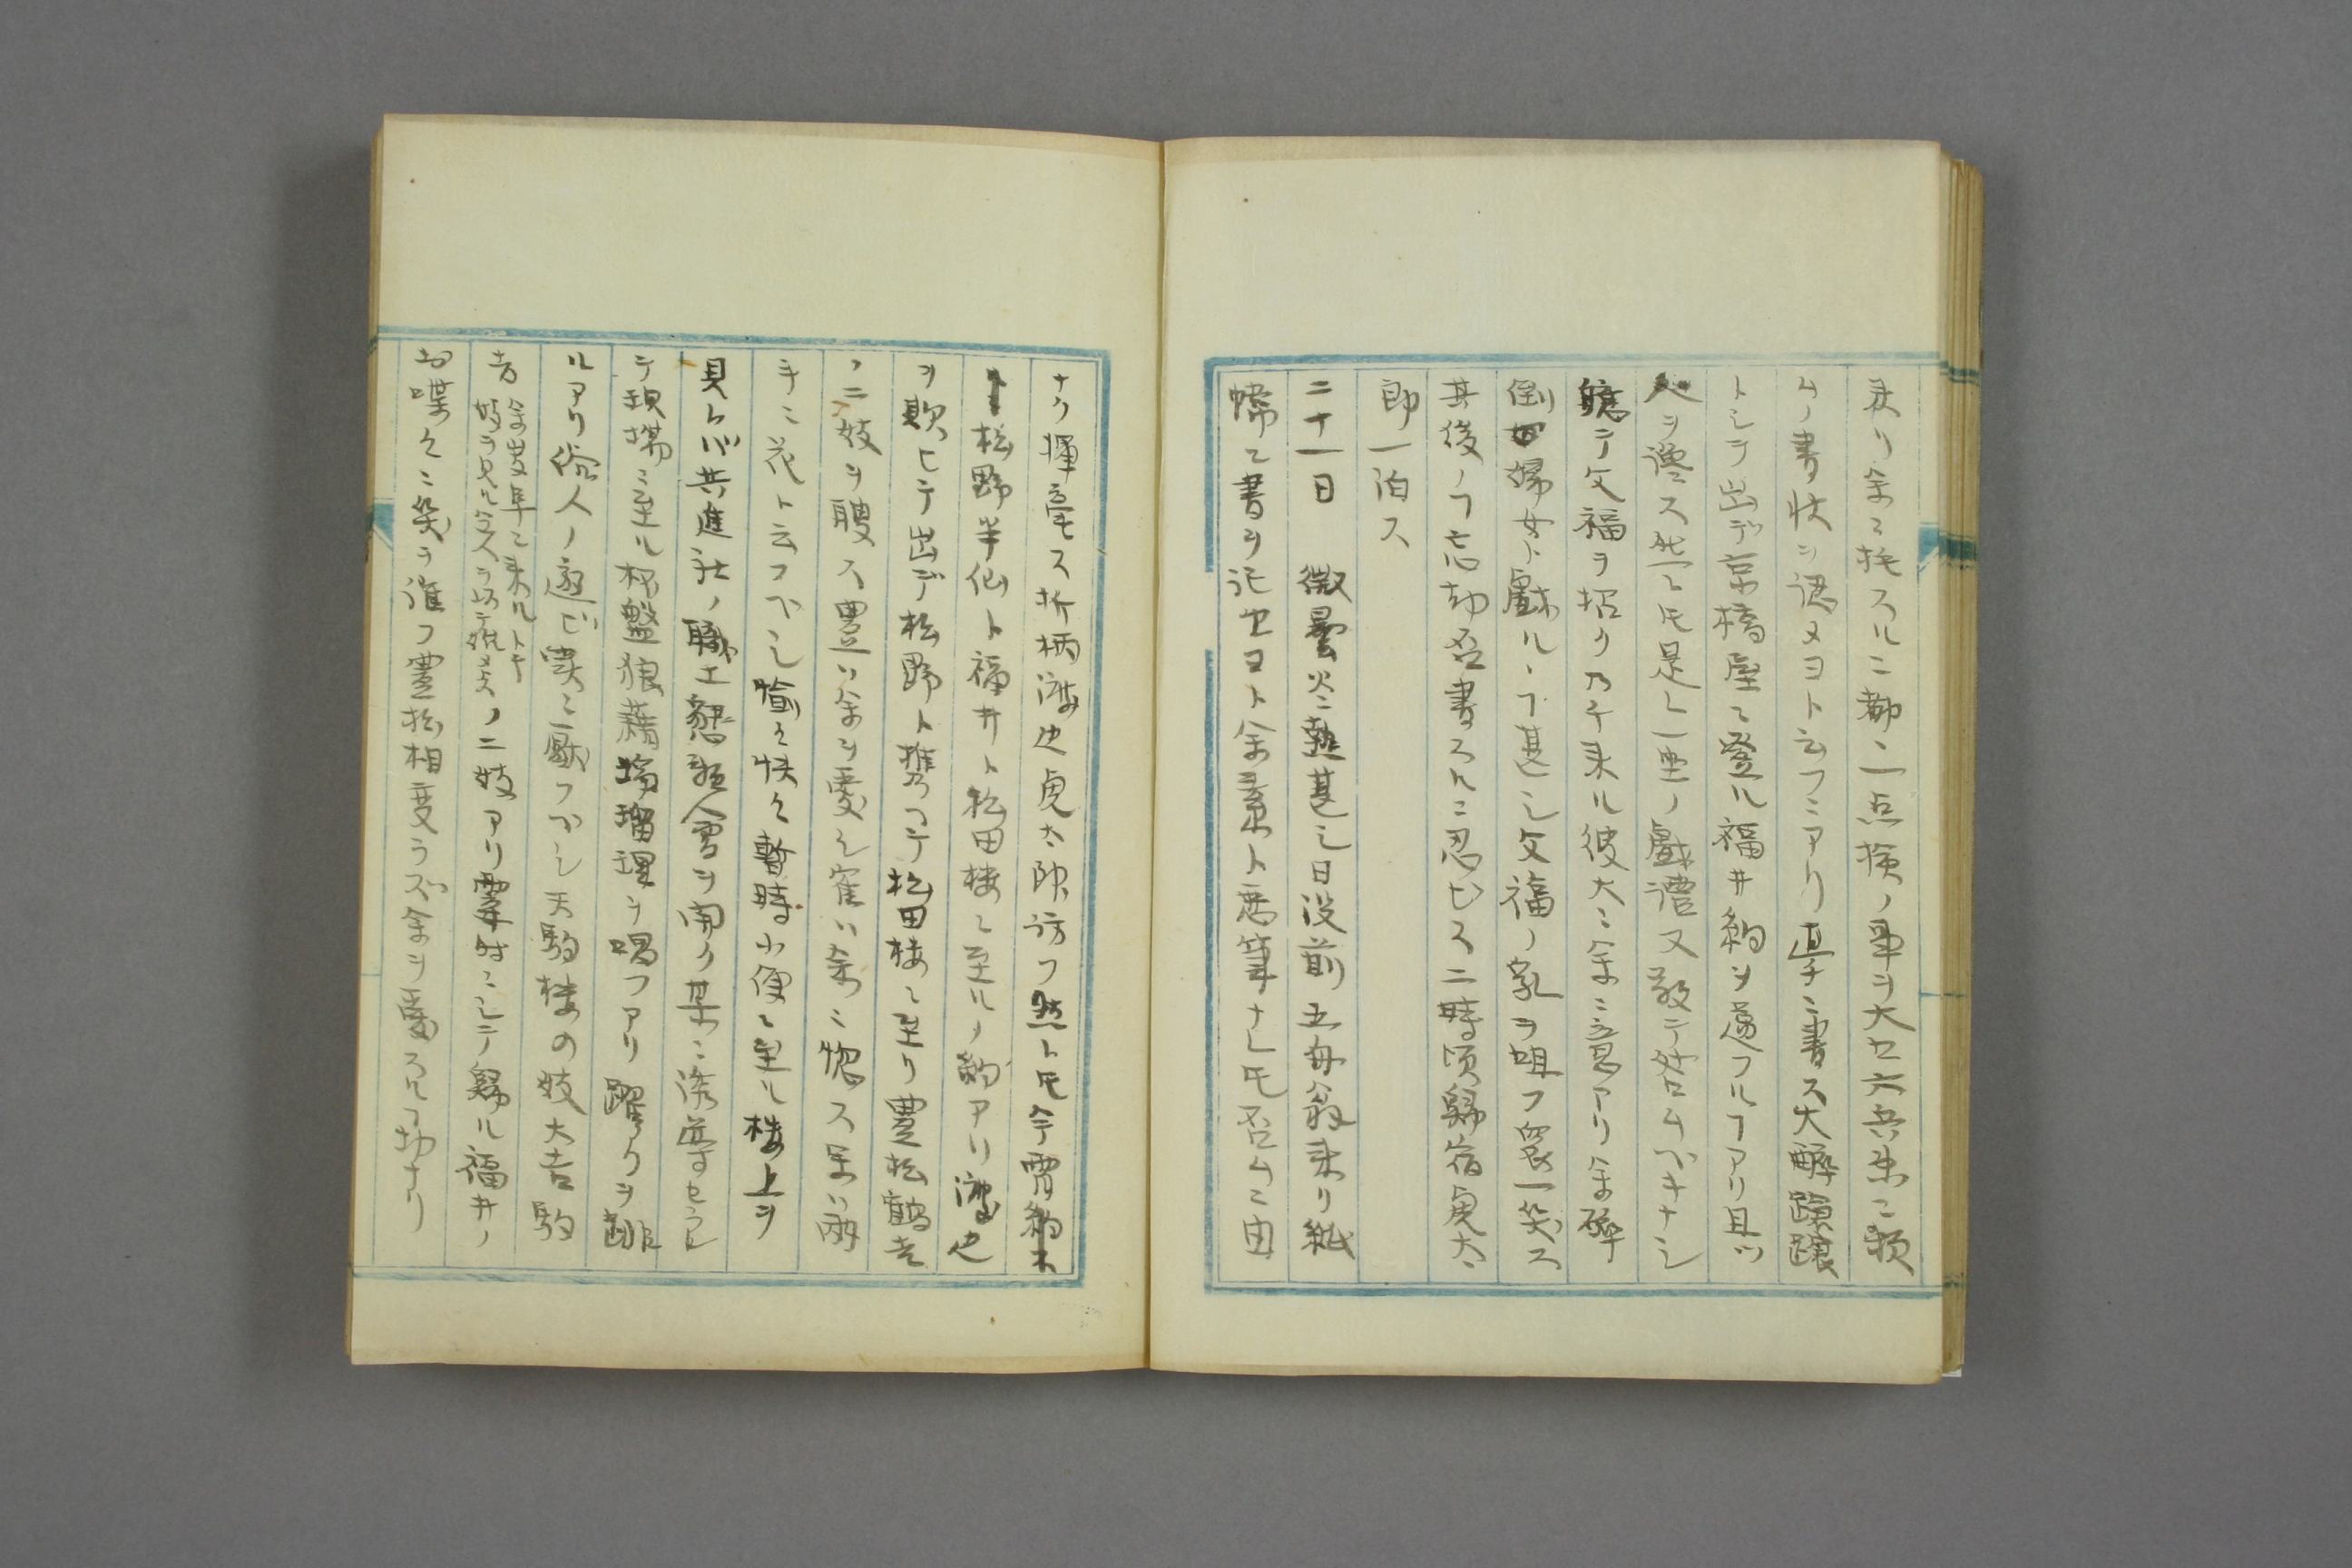 来リ余ニ托スルニ都ニ点検ノ事ヲ大廿六兵衛ニ頼
ムノ書状ヲ認メヨト云フニアリ直チニ書ス大酔
トシテ出デ京橋屋ニ登ル福井約ヲ違フルヿアリ且ツ
ヲ 然レ𪜈是レ一里ノ戯 又敢テ咎ムベキナシ
テ文福ヲ招ク乃チ来ル彼大ニ余ニ意アリ余酔
倒婦女ト戯ルヽヿ甚シ文福ノ乳ヲ咀フ衆一笑ス
其後ノヿ忘却否書スルニ忍ビス二時頃歸宿虎太
郎一泊ス
二十一日 微曇炎熱甚シ日没前五舟翁来リ紙
幟ニ書ヲ記セヨト余素ト悪筆ナレ𪜈否ムニ由
ナク揮毫ス折柄渡辺虎太郎訪フ然ト𪜈今宵約ス
松野半仙ト福井ト松田楼ニ至ルノ約アリ渡辺
ヲ欺ヒテ出デ松野ト携ヘテ松田楼ニ至リ豊松鶴吉
ノ二妓ヲ聘ス豊ハ余ヲ愛シ寉ハ余ニ惚ス余ハ両
手ニ花ト云フベシ愉々快々暫時小便ニ至ル楼上ヲ
見レバ共進社ノ職工懇親會ヲ開ク某ニ誘導セラレ
テ現場ニ至ル杯盤狼藉 瑠理ヲ唱フアリ躍リヲ
ルアリ俗人ノ遊ビ実ニ厭フベシ天駒楼の妓大吉駒
吉 余岐阜ニ来ルトキ
妓ヲ見ル ノ二妓アリ霎時ニシテ歸ル福井ノ
喋々ニ笑ヲ進フ豊松相変ラズ余ヲ愛スルヿ切ナリ